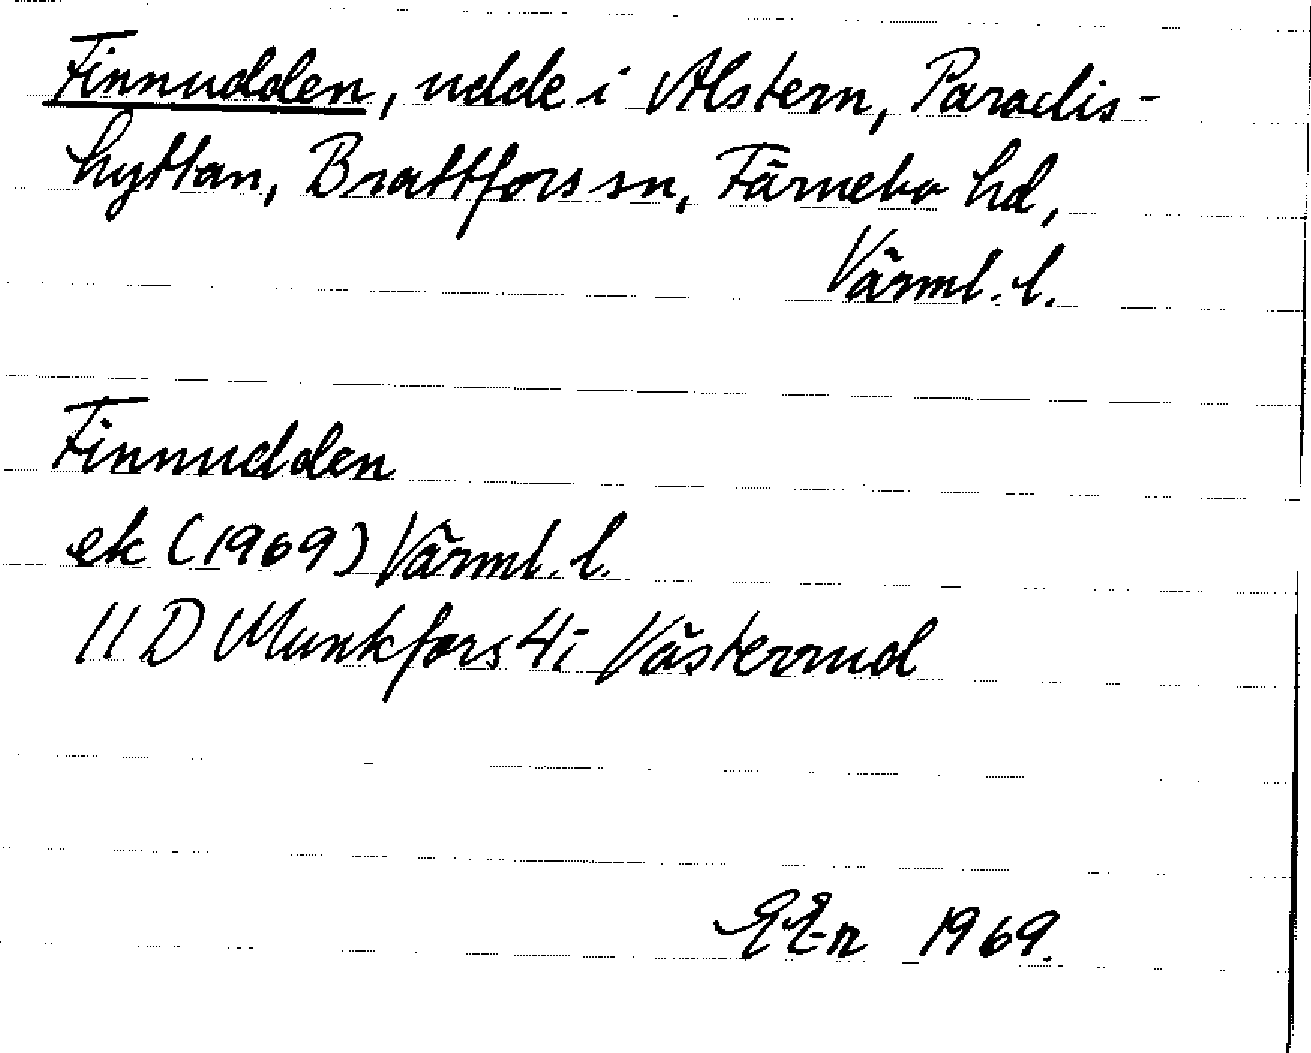 Finnudden, udde i Alstern, Paradis-
hyttan, Brattfors sn, Färnebo hd,
Värml. l.
Finnudden
ek (1969) Värml. l.
11 D Munkfors 4i Västerrud
EE-n 1969.